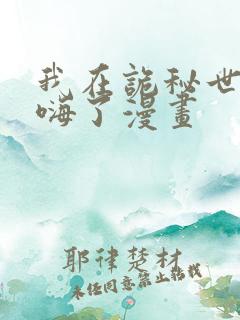 我在詭秘世
嗨了漫畫
耶律楚材
未經同意禁止轉載